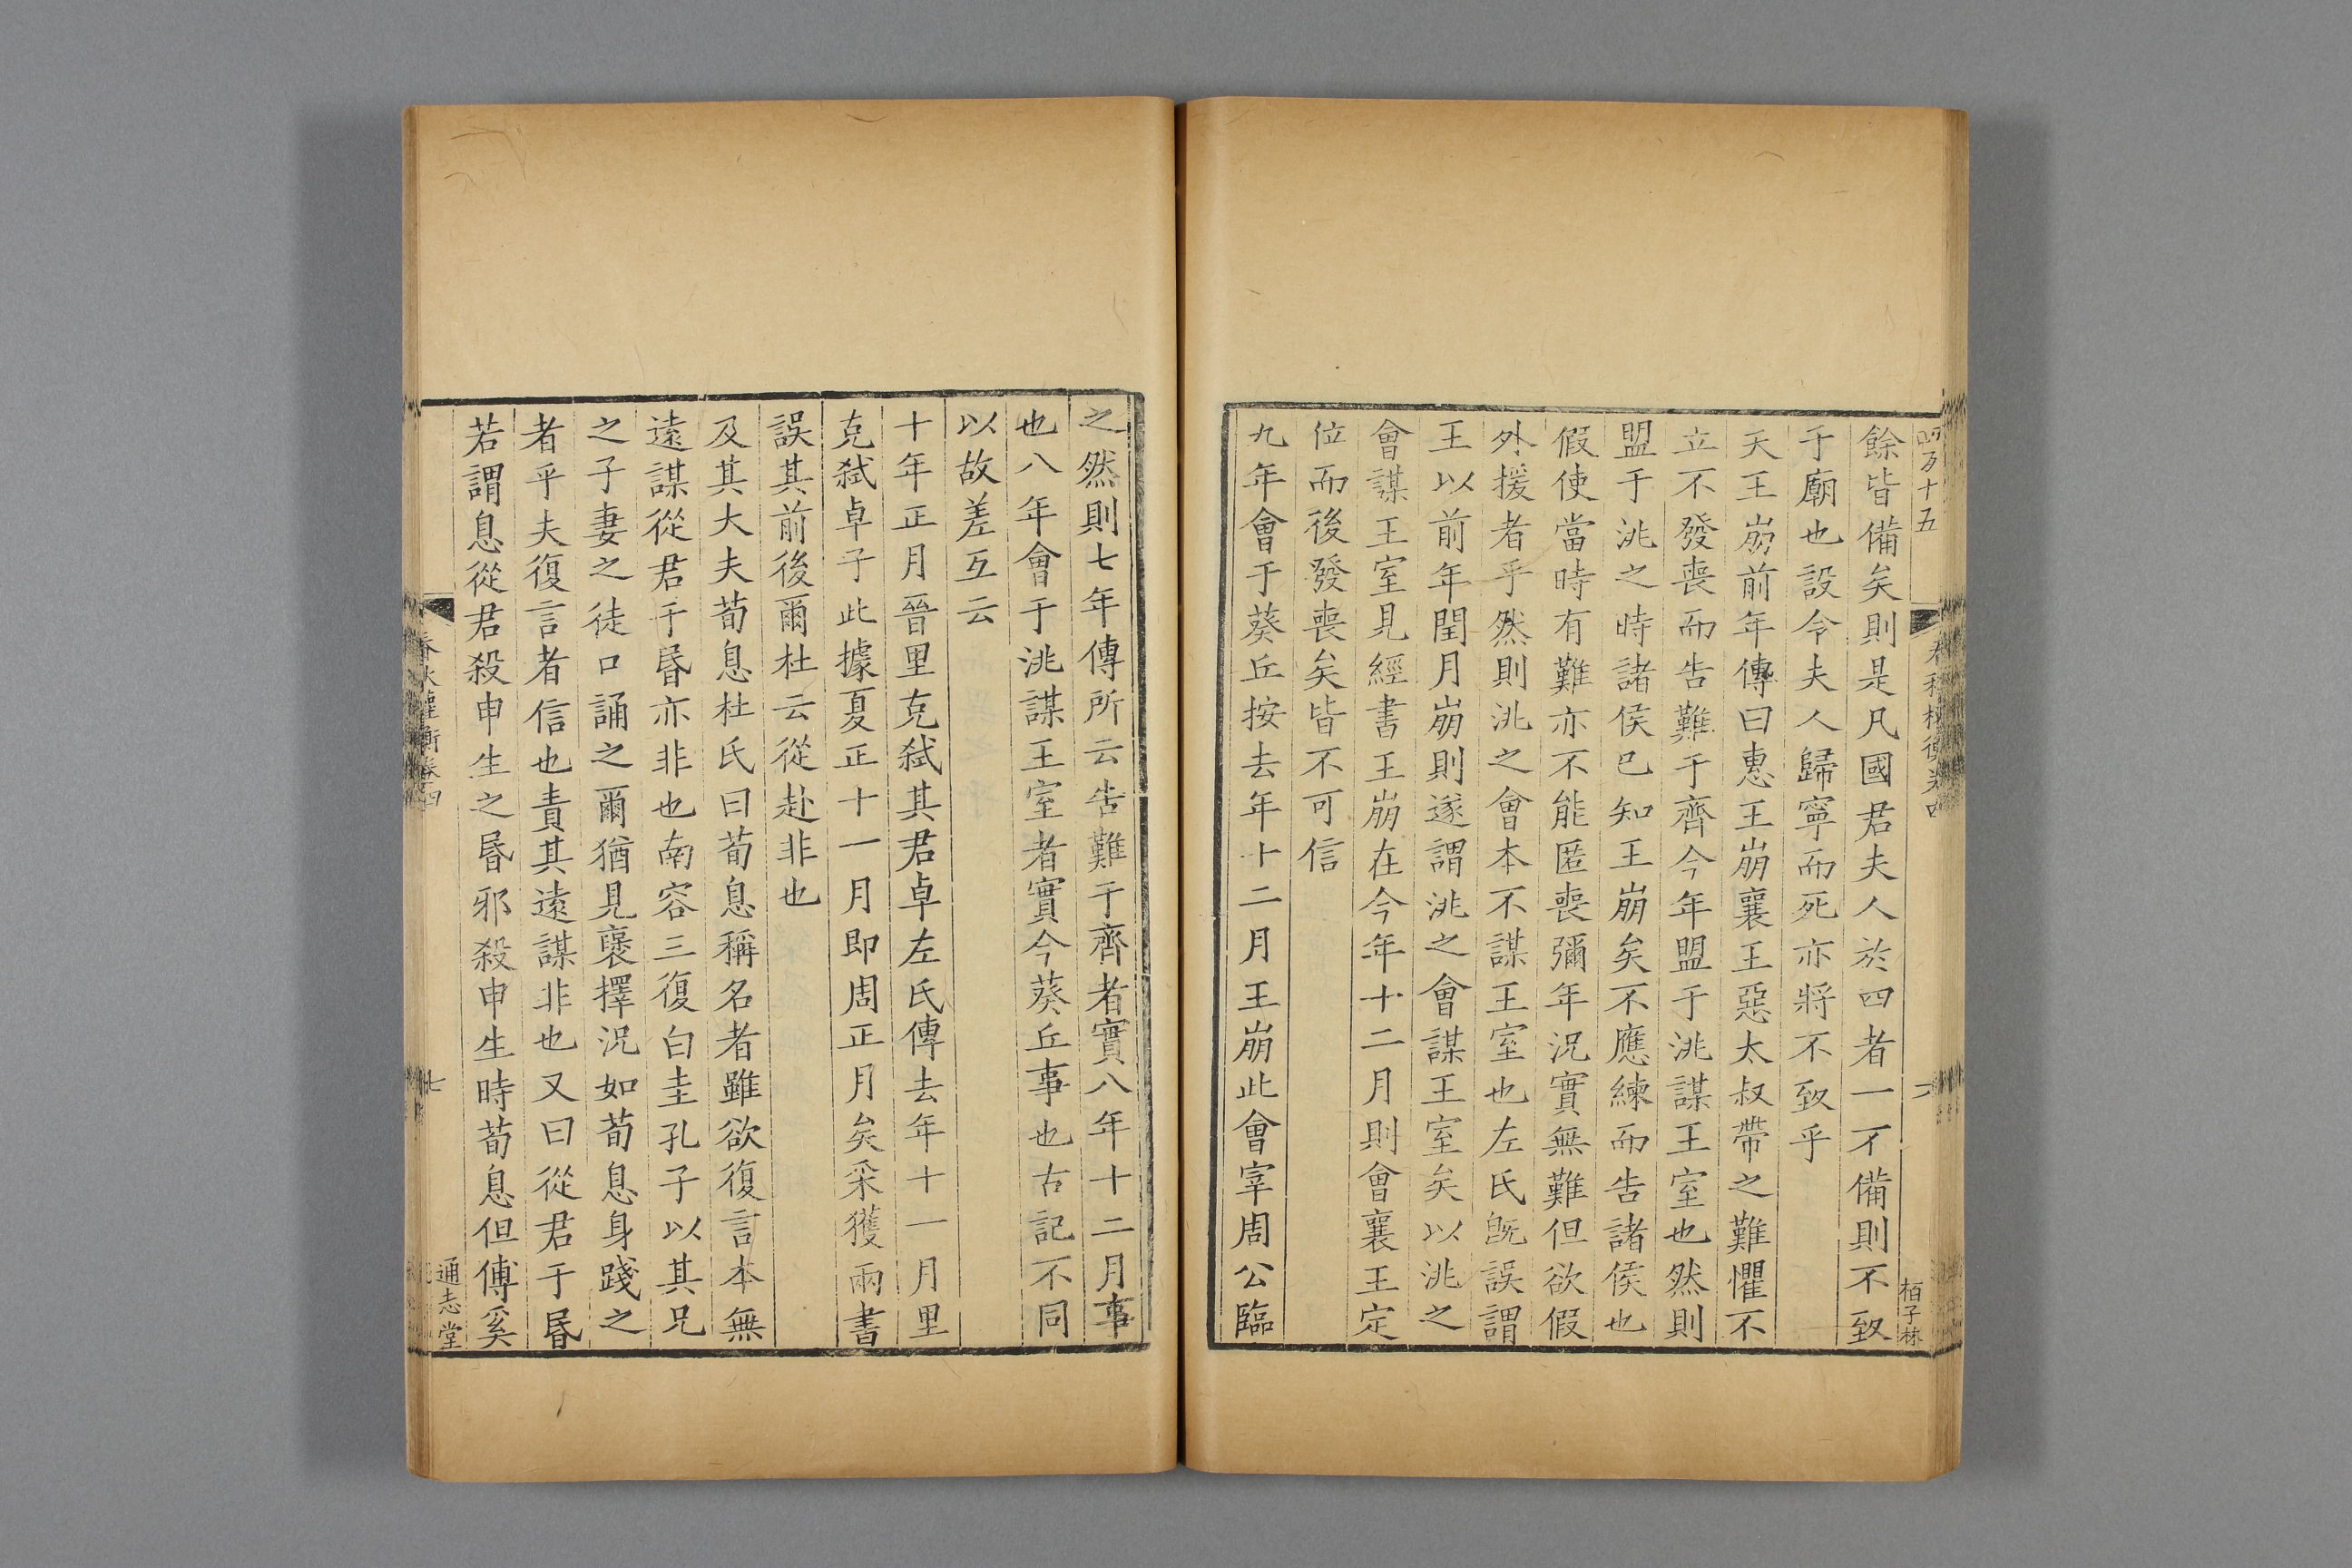 餘皆備矣則是凡國君夫人於四者一不備則不致
于廟也設令夫人歸寧而死亦將不致乎
天王崩前年傳曰惠王崩襄王惡太叔帶之難懼不
立不發喪而告難于齊今年盟于洮謀王室也然則
盟于洮之時諸侯已知王崩矣不應練而告諸侯也
假使當時有難亦不能匿喪彌年況實無難但欲假
外援者乎然則洮之會本不謀王室也左氏旣誤謂
王以前年閏月崩則遂謂洮之會謀王室矣以洮之
會謀王室見經書王崩在今年十二月則會襄王定
位而後發喪矣皆不可信
九年會于葵丘按去年十二月王崩此會宰周公臨
柏子林
之然則七年傳所云告難于齊者實八年十二月事
也八年會于洮謀王室者實今葵丘事也古記不同
以故差互云
十年正月晉里克弑其君卓左氏傳去年十一月里
克弑卓子此據夏正十一月即周正月矣采獲兩書
誤其前後爾杜云從赴非也
及其大夫荀息杜氏曰荀息稱名者雖欲復言本無
遠謀從君于昬亦非也南容三復白圭孔子以其兄
之子妻之徒口誦之爾猶見褒擇況如荀息身踐之
者乎夫復言者信也責其遠謀非也又曰從君于昬
若謂息從君殺申生之昬邪殺申生時荀息但傅奚
春秋權衡卷四
七
通志堂